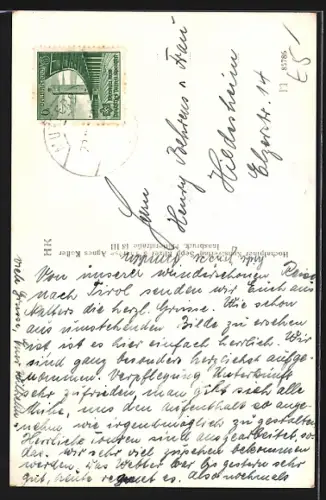 Herrn
Henry Behrens u Frau
Hildesheim
Elzerstr. 14
E5
H 05786
HK
Hochalpiner Kunstverlag Sepp Ritzer Agnes Koller
Innsbruck, straße 14 III
Von unserer wunderschönen Reise
nach Tirol senden wir Euch aus
die herzl. Grüsse. Wie schon
aus umstehenden Bilde zu ersehen
ist ist es hier einfach herrlich. Wir
sind ganz besonders herzlichst aufge-
nommen. Verpflegung Unterkunft
sehr zufrieden, man gibt sich alle
Mühe, uns den Aufenthalt so ange-
nehm wie irgendmöglich zu gestalten
Herrliche Touren sind ausgearbeitet, so
das wir sehr viel zusehen bekommen
werden, das Wetter war bis gestern sehr
gut, heute regnet es. Also nochmals
viele Grüsse, Eure